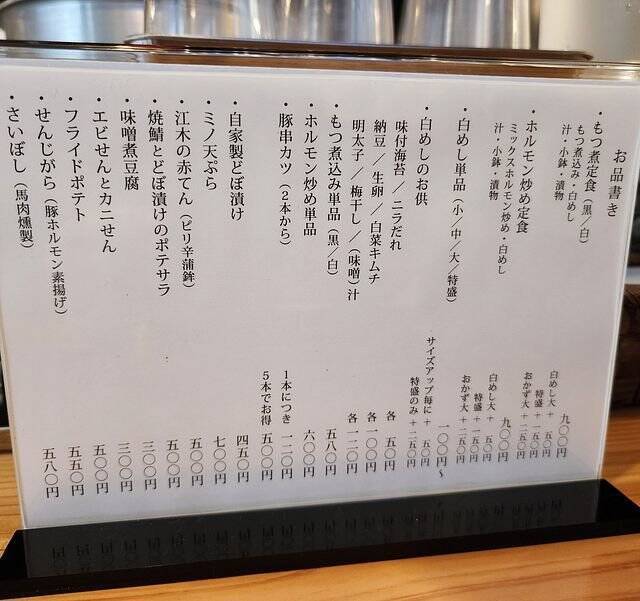 お品書き
・もつ煮定食（黒／白）
もつ煮込み・白めし
汁・小鉢・漬物
九〇〇円
白めし大 ＋ 五〇円
特盛 ＋ 一五〇円
おかず大 ＋ 二五〇円
・ホルモン炒め定食
ミックスホルモン炒め・白めし
汁・小鉢・漬物
九〇〇円
白めし大 ＋ 五〇円
特盛 ＋ 一五〇円
おかず大 ＋ 二五〇円
・白めし単品（小／中／大／特盛）
一〇〇円〜
サイズアップ毎に ＋ 五〇円
特盛のみ ＋ 一五〇円
・白めしのお供
味付海苔／ニラだれ
各 五〇円
納豆／生卵／白菜キムチ
各 一〇〇円
明太子／梅干し／（味噌）汁
各 一二〇円
・もつ煮込み単品（黒／白）
五八〇円
・ホルモン炒め単品
六〇〇円
・豚串カツ（２本から）
１本につき 一二〇円
５本でお得 五〇〇円
・自家製どぼ漬け
四五〇円
・ミノ天ぷら
七〇〇円
・江木の赤てん（ピリ辛蒲鉾）
五〇〇円
・焼鯖とどぼ漬けのポテサラ
五〇〇円
・味噌煮豆腐
三〇〇円
・エビせんとカニせん
三〇〇円
・フライドポテト
五〇〇円
・せんじがら（豚ホルモン素揚げ）
五五〇円
・さいぼし（馬肉燻製）
五八〇円